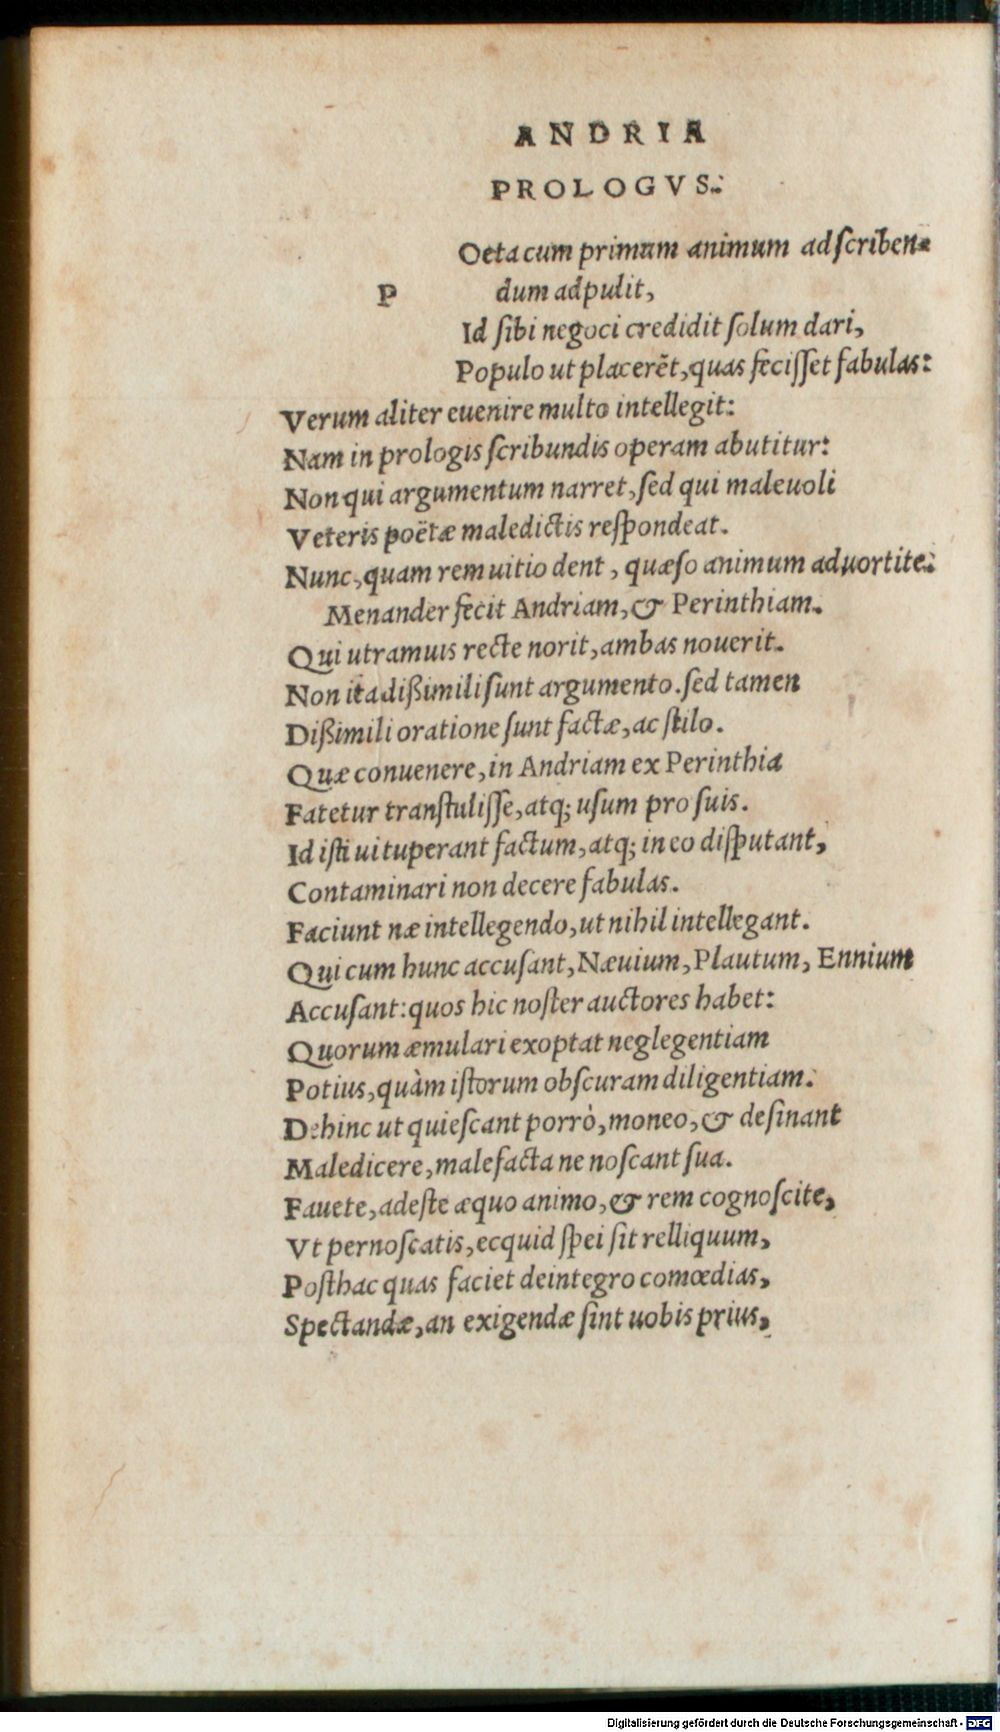 ANDRIA
PROLOGVS.
Oeta cum primum animum ad scriben-
P dum adpulit,
Id sibi negoci credidit solum dari,
Populo ut placerēt, quas fecisset fabulas:
Verum aliter euenire multo intellegit:
Nam in prologis scribundis operam abutitur:
Non qui argumentum narret, sed qui maleuoli
Veteris poëtæ maledictis respondeat.
Nunc, quam rem uitio dent, quæso animum aduortite.
Menander fecit Andriam, & Perinthiam.
Qui utramuis recte norit, ambas nouerit.
Non ita dißimili sunt argumento. sed tamen
Dißimili oratione sunt factæ, ac stilo.
Quæ conuenere, in Andriam ex Perinthia
Fatetur transtulisse, atq; usum pro suis.
Id isti uituperant factum, atq; in eo disputant,
Contaminari non decere fabulas.
Faciunt næ intellegendo, ut nihil intellegant.
Qui cum hunc accusant, Næuium, Plautum, Ennium
Accusant: quos hic noster auctores habet:
Quorum æmulari exoptat neglegentiam
Potius, quàm istorum obscuram diligentiam.
Dehinc ut quiescant porrò, moneo, & desinant
Maledicere, malefacta ne noscant sua.
Fauete, adeste æquo animo, & rem cognoscite,
Vt pernoscatis, ecquid spei sit relliquum,
Posthac quas faciet deintegro comœdias,
Spectandæ, an exigendæ sint uobis prius,
Digitalisierung gefördert durch die Deutsche Forschungsgemeinschaft - DFG